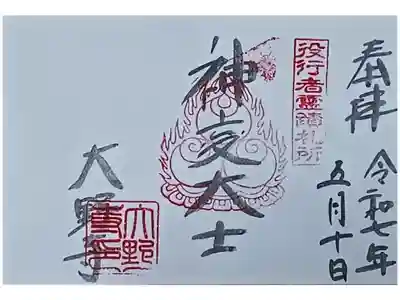 奉拝
令和七年
五月十日
役行者霊蹟札所
神変大士
大野寺
大野
寺印